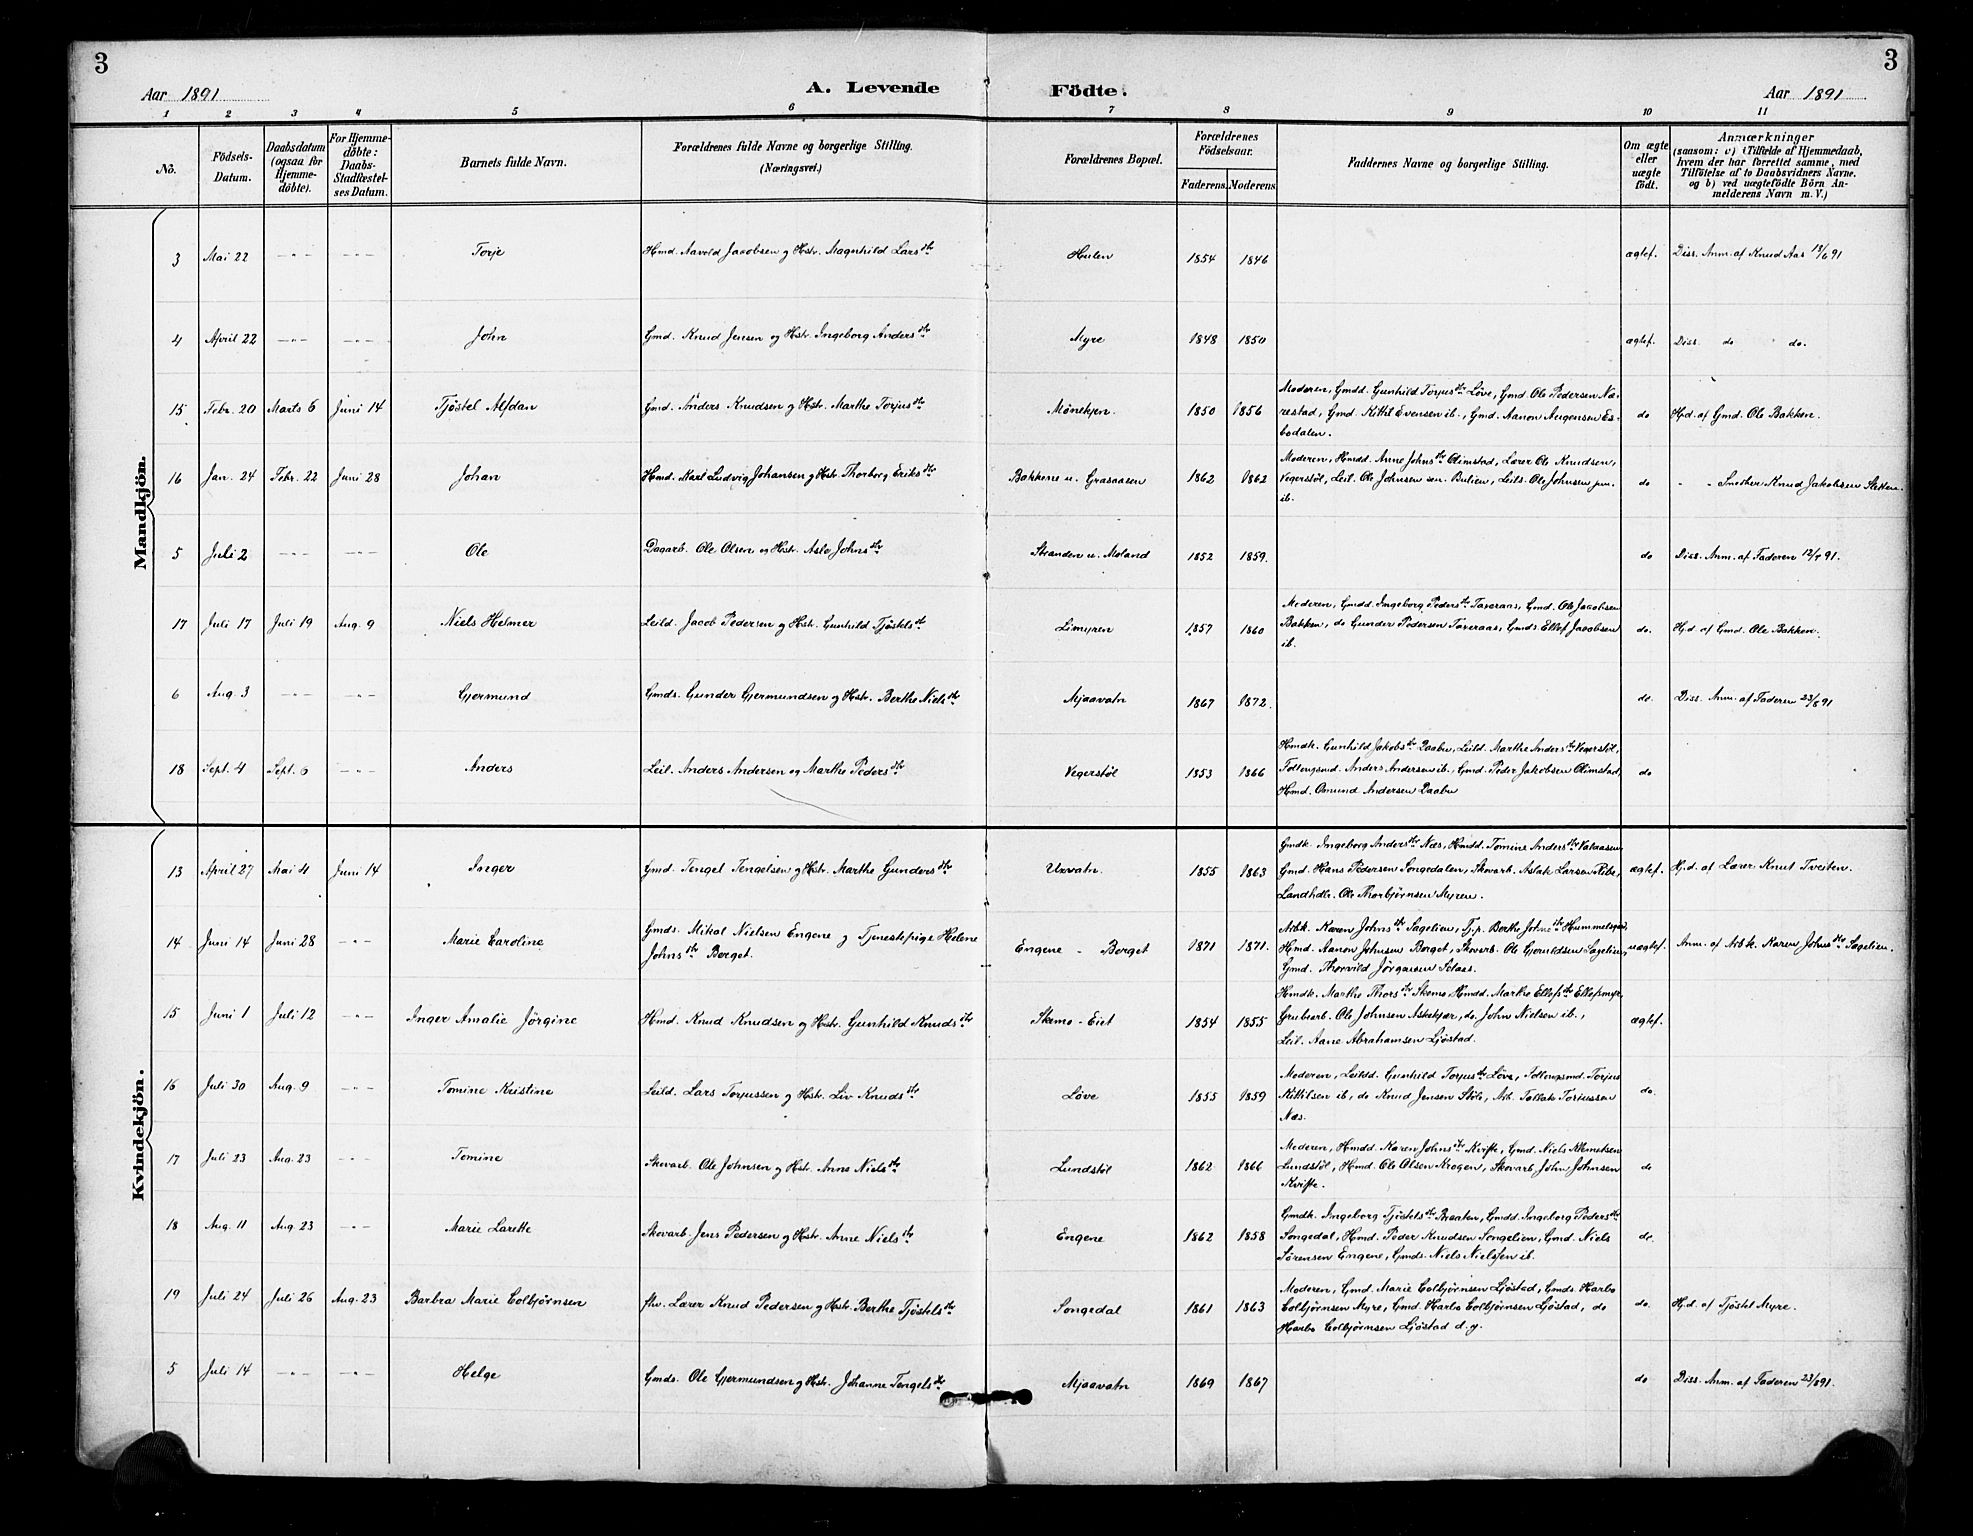 3
3
Aar 1891
A. Levende Födte.
Aar 1891
1 2 3 4 5 6 7 8 9 10 11
No.
Födsels-Datum.
Daabsdatum (ogsaa for Hjemme-döbte).
For Hjemme-döbte: Daabs-Stadfæstel-ses Datum.
Barnets fulde Navn.
Forældrenes fulde Navne og borgerlige Stilling. (Næringsvei.)
Forældrenes Bopæl.
Forældrenes Födselsaar.
Faderens. Moderens.
Faddernes Navne og borgerlige Stilling.
Om ægte eller uægte födt.
Anmærkninger
(saasom: a) i Tilfælde af Hjemmedaab,
hvem der har forrettet samme, med
Tilföielse af to Daabsvidners Navne.
og b) ved uægtefödte Börn An-
melderens Navn m. V.)
Mandkjön.
3 Mai 22 -"- -"- Torje Hmd. Aavold Jacobsen og Hstr. Magnhild Larsdtr Hulen 1854 1846 ægtef. Diss. Anm. af Knud Aas 13/6 91
4 April 22 -"- -"- John Gmd. Knud Jensen og Hstr. Ingeborg Andersdtr Myre 1848 1850 ægtef. Diss. do do.
15 Febr. 20 Marts 6 Juni 14 Tjøstel Alfdan Gmd. Anders Knudsen og Hstr. Marthe Torjusdtr Mønekjen 1850 1856 Moderen, Gmdd. Gunhild Torjusdtr Löve, Gmd. Ole Pedersen Næ-
restad, Gmd. Kittil Evensen ib., Gmd. Aanon Augensen Es-
bodalen. do Hjd. af Gmd. Ole Bakken.
16 Jan. 24 Febr. 22 Juni 28 Johan Hmd. Karl Ludvig Johansen og Hstr. Thorborg Eriksdtr Bakkene u. Grasaasen 1862 1862 Moderen, Hmdd. Anne Johnsdtr Olimstad, Lærer Ole Knudsen,
Vegerstøl, Leil. Ole Johnsen sen. Bulien, Leils. Ole Johnsen jun.
ib. do " " Smeder Knud Jakobsen Sletten.
5 Juli 2 -"- -"- Ole Dagarb. Ole Olsen og Hstr. Aslo Johnsdtr Stranden u. Moland 1852 1859. do Diss. Anm. af Faderen
17 Juli 17 Juli 19 Aug. 9 Niels Helmer Leild. Jacob Pedersen og Hstr. Gunhild Tjöstelsdtr Limyren 1857 1860 Moderen, Gmdd. Ingeborg Pedersdtr Taxeraas, Gmd. Ole Jacobsen
Bakken, do Gunder Pedersen Taxeraas, Gmds. Ellef Jacobsen
ib. do. Hjd. af Gmd. Ole Bakken.
6 Aug. 3 -"- -"- Gjermund Gmds. Gunder Gjermundsen og Hstr. Berthe Nielsdtr Mjaavatn 1867 1872. do. Diss. Anm. af Faderen 23/8 91
18 Sept. 4 Sept. 6 -"- Anders Leil. Anders Andersen og Marthe Pedersdtr Vegerstöl 1853 1866 Hmdk. Gunhild Jakobsdtr Daabu, Leild. Marthe Andersdtr Vegerstöl,
Anders Andersen ib., Gmd. Peder Jakobsen Olimstad,
Hmd. Omund Andersen Daabu do
Kvindekjön.
13 April 27 Mai 4 Juni 14 Inger Gmd. Tengel Tengelsen og Hstr. Marthe Gundersdtr Urvatn. 1855 1863 Gmdk. Ingeborg Andersdtr Næs, Hmdd. Tomine Andersdtr Valaasen,
Gmd. Hans Pedersen Songedalen, Skovarb. Aslak Larsen Ribe,
Landhdlr. Ole Thorbjørnsen Myren. ægtef. Hjd. af Lærer Knut Tveiten.
14 Juni 14 Juni 28 -"- Marie Caroline Gmds. Mikal Nielsen Engene og Tjenestepige Helene
Johnsdtr Borget. Engene - Borget 1871 1871. Arbk. Karen Johnsdtr Sagelien, Tj.p. Berthe Johnsdtr
Hmd. Aanon Johnsen Borget, Skovarb. Ole Gjeruldsen Sagelien,
Gmd. Thorvild Jørgensen Solaas. uægtef. Anm. af Arbk. Karen Johnsdtr Sagelien.
15 Juni 1 Juli 12 -"- Inger Amalie Jörgine Hmd. Knud Knudsen og Hstr. Gunhild Knudsdtr Skemo-Eiet 1854 1855 Hmdk. Marthe Thorsdtr Skemo Hmdd. Marthe Ellefsdtr Ellefsmyr,
Grubearb. Ole Johnsen Askekjær, do. John Nielsen ib.,
Leil. Aane Abrahamsen Ljöstad. ægtef.
16 Juli 30 Aug. 9 -"- Tomine Kristine Leild. Lars Torjussen og Hstr. Liv Knudsdtr Löve 1855 1859 Moderen, Leild. Gunhild Torjusdtr Löve, Torjus
Kittilsen ib, do Knud Jensen Stöle, Arb. Tallak Torjussen
Næs. do.
17 Juli 23 Aug. 23 -"- Tomine Skovarb. Ole Johnsen og Hstr. Anne Nielsdtr Lundstöl 1862 1866 Moderen, Hmdd. Karen Johnsdtr Kvifte, Gmd. Niels Klemetsen
Lundstöl, Hmd. Ole Olsen Krogen, Skovarb. John Johnsen
Kvifte. do
18 Aug. 11 Aug. 23 -"- Marie Larette Skovarb. Jens Pedersen og Hstr. Anne Nielsdtr Engene 1862 1858 Gmdk. Ingeborg Tjöstelsdtr Braaten, Gmdd. Ingeborg Pedersdtr
Songedal, Hmd. Peder Knudsen Songelien, Gmd. Niels
Sørensen Engene, Gmds. Niels Nielssen ib. do.
19 Juli 24 Juli 26 Aug. 23 Barbra Marie Colbjørnsen fhv. Lærer Knud Pedersen og Hstr. Berthe Tjöstelsdtr Songedal 1861 1863 Moderen, Gmd. Marie Colbjørnsen Ljöstad, Gmds Harbo
Colbjørnsen Myre, Gmd. Harbo Colbjørnsen Ljöstad, do
Harbo Colbjørnsen Ljöstad d. y. do. Hjd. af Tjöstel Myre.
5 Juli 14 -"- -"- Helge Gmds. Ole Gjermundsen og Hstr. Johanne Tengelsdtr Mjaavatn 1869 1867 do Diss. Anm. af Faderen 23/8 91.